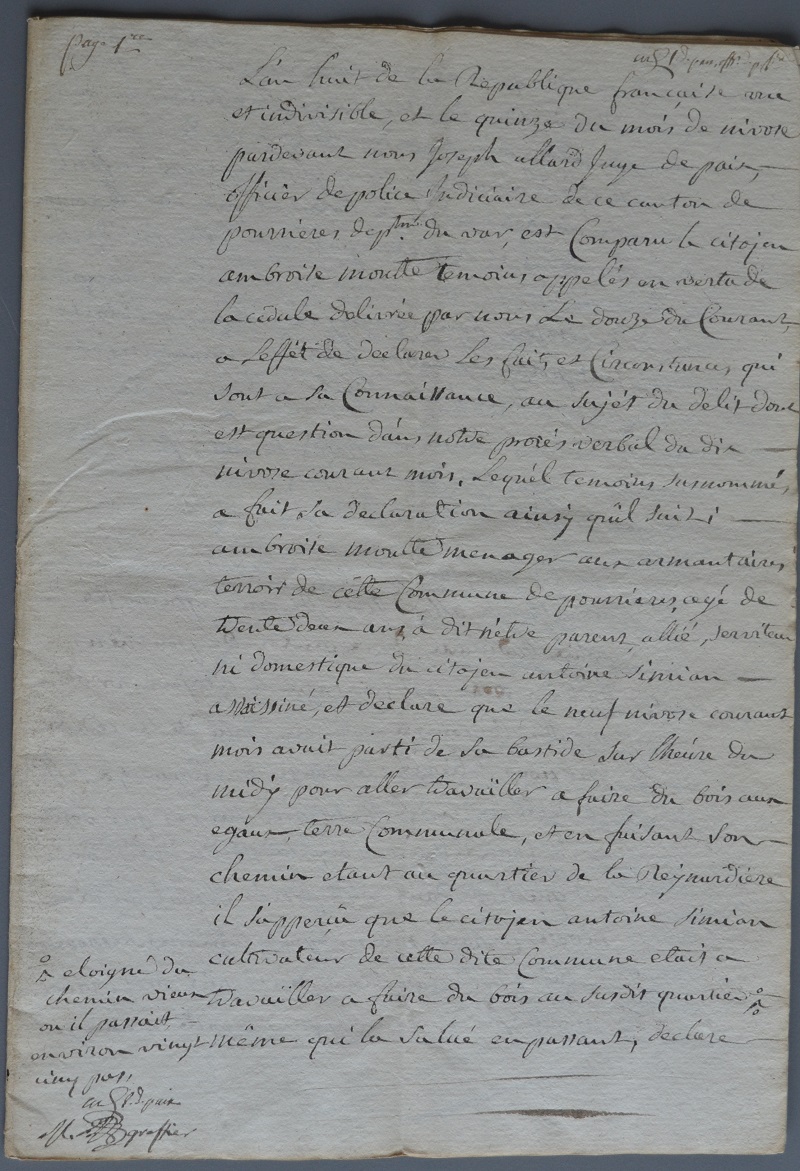 page 1re
L'an huit de la Republique française une
et indivisible, et le quinze du mois de nivose
pardevant nous Joseph allard Juge de paix,
officier de police Judiciaire de ce canton de
pourrieres deptmt. du var, est Comparu le citojen
ambroise moutte temoins appelés en vertu de
la cedule delivrée par nous Le douze du Courant,
a L'effét de declarer Les faits et Circonstances, qui
sont a sa Connaissance, au sujét du delit dont
est question dans notre procés verbal du dix
nivose courant mois, Lequél temoins susnommés
a fait sa declaration ainsy qu'il suit;
ambroise moutte menager aux armantaires
terroir de cétte Commune de pourrieres, agé de
trente deux ans, à dit n'étre parent, allié, serviteur
ni domestique du citojen antoine Simian
assassiné, et declare que le neuf nivose courant
mois avait parti de sa bastide sur l'heure du
midÿ pour aller travaïller a faire du bois aux
egaux, terre Communale, et en faisant son
chemin etant au quartier de la Reynardiere
il s'apperçu que le citojen antoine Simian
cultivateur de cette dite Commune etait a
travaïller a faire du bois au susdit quartier
même qui la salué en passant, declare
eloigné du
chemin vieux
ou il passait
environ vingt
cinq pas,
greffier